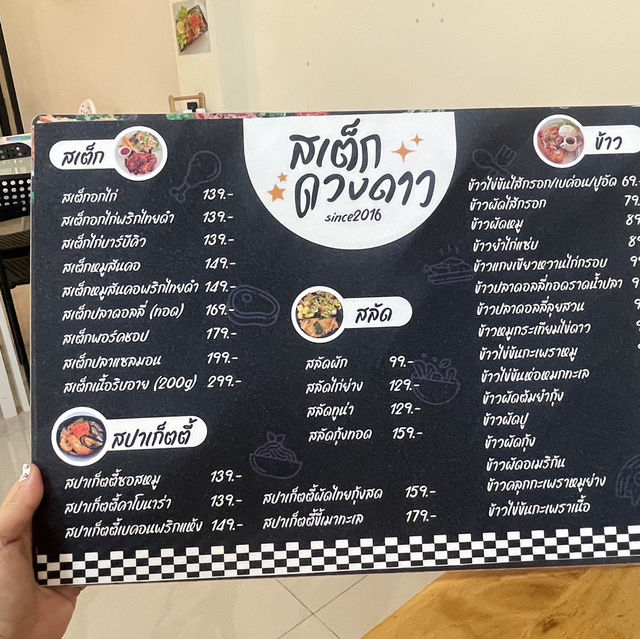 สเต็ก
ดวงดาว
since2016
สเต็ก
สเต็กอกไก่ 139.-
สเต็กอกไก่พริกไทยดำ 139.-
สเต็กไก่บาร์บีคิว 139.-
สเต็กหมูสันคอ 149.-
สเต็กหมูสันคอพริกไทยดำ 149.-
สเต็กปลาดอลลี่ (ทอด) 169.-
สเต็กพอร์คชอป 179.-
สเต็กปลาแซลมอน 199.-
สเต็กเนื้อริบอาย (200g) 299.-
สปาเก็ตตี้
สปาเก็ตตี้ซอสหมู 139.-
สปาเก็ตตี้คาโบนาร่า 139.-
สปาเก็ตตี้เบคอนพริกแห้ง 149.-
สปาเก็ตตี้ผัดไทยกุ้งสด 159.-
สปาเก็ตตี้ขี้เมาทะเล 179.-
สลัด
สลัดผัก 99.-
สลัดไก่ย่าง 129.-
สลัดทูน่า 129.-
สลัดกุ้งทอด 159.-
ข้าว
ข้าวไข่ข้นไส้กรอก/เบค่อน/ปูอัด 69.-
ข้าวผัดไส้กรอก 79.
ข้าวผัดหมู
ข้าวยำไก่แซ่บ
ข้าวแกงเขียวหวานไก่กรอบ
ข้าวปลาดอลลี่ทอดราดน้ำปลา
ข้าวปลาดอลลี่ลุยสวน
ข้าวหมูกระเทียมไข่ดาว
ข้าวไข่ข้นกะเพราหมู
ข้าวไข่ข้นห่อหมกทะเล
ข้าวผัดต้มยำกุ้ง
ข้าวผัดปู
ข้าวผัดกุ้ง
ข้าวผัดอเมริกัน
ข้าวคลุกกะเพราหมูย่าง
ข้าวไข่ข้นกะเพราเนื้อ